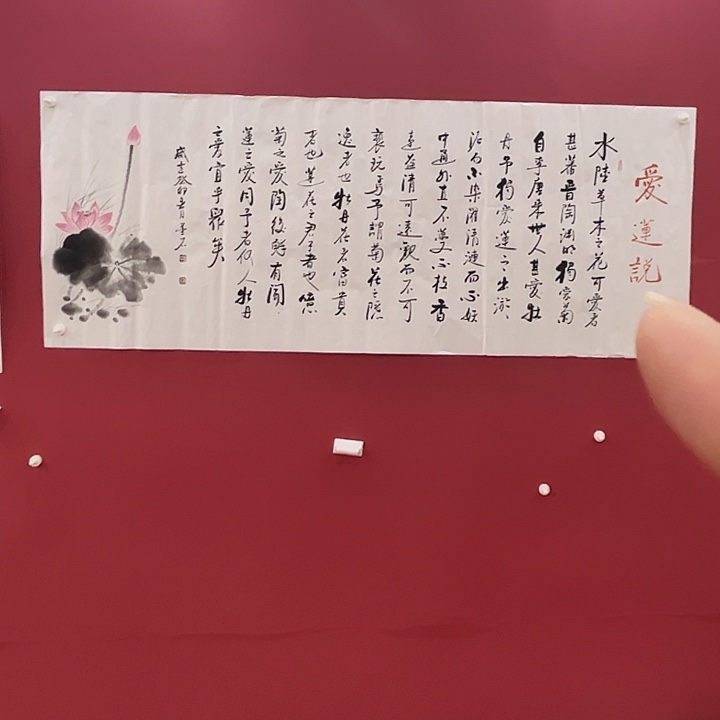 愛蓮說
水陸草木之花可愛者
甚蕃晉陶淵明獨愛菊
自李唐來世人甚愛牡
丹予獨愛蓮之出淤
泥而不染濯清漣而不妖
中通外直不蔓不枝香
遠益清可遠觀而不可
褻玩焉予謂菊花之隱
逸者也牡丹花之富貴
者也蓮花之君子者也噫
菊之愛陶後鮮有聞
蓮之愛同予者何人牡丹
之愛宜乎眾矣
歲在癸卯月